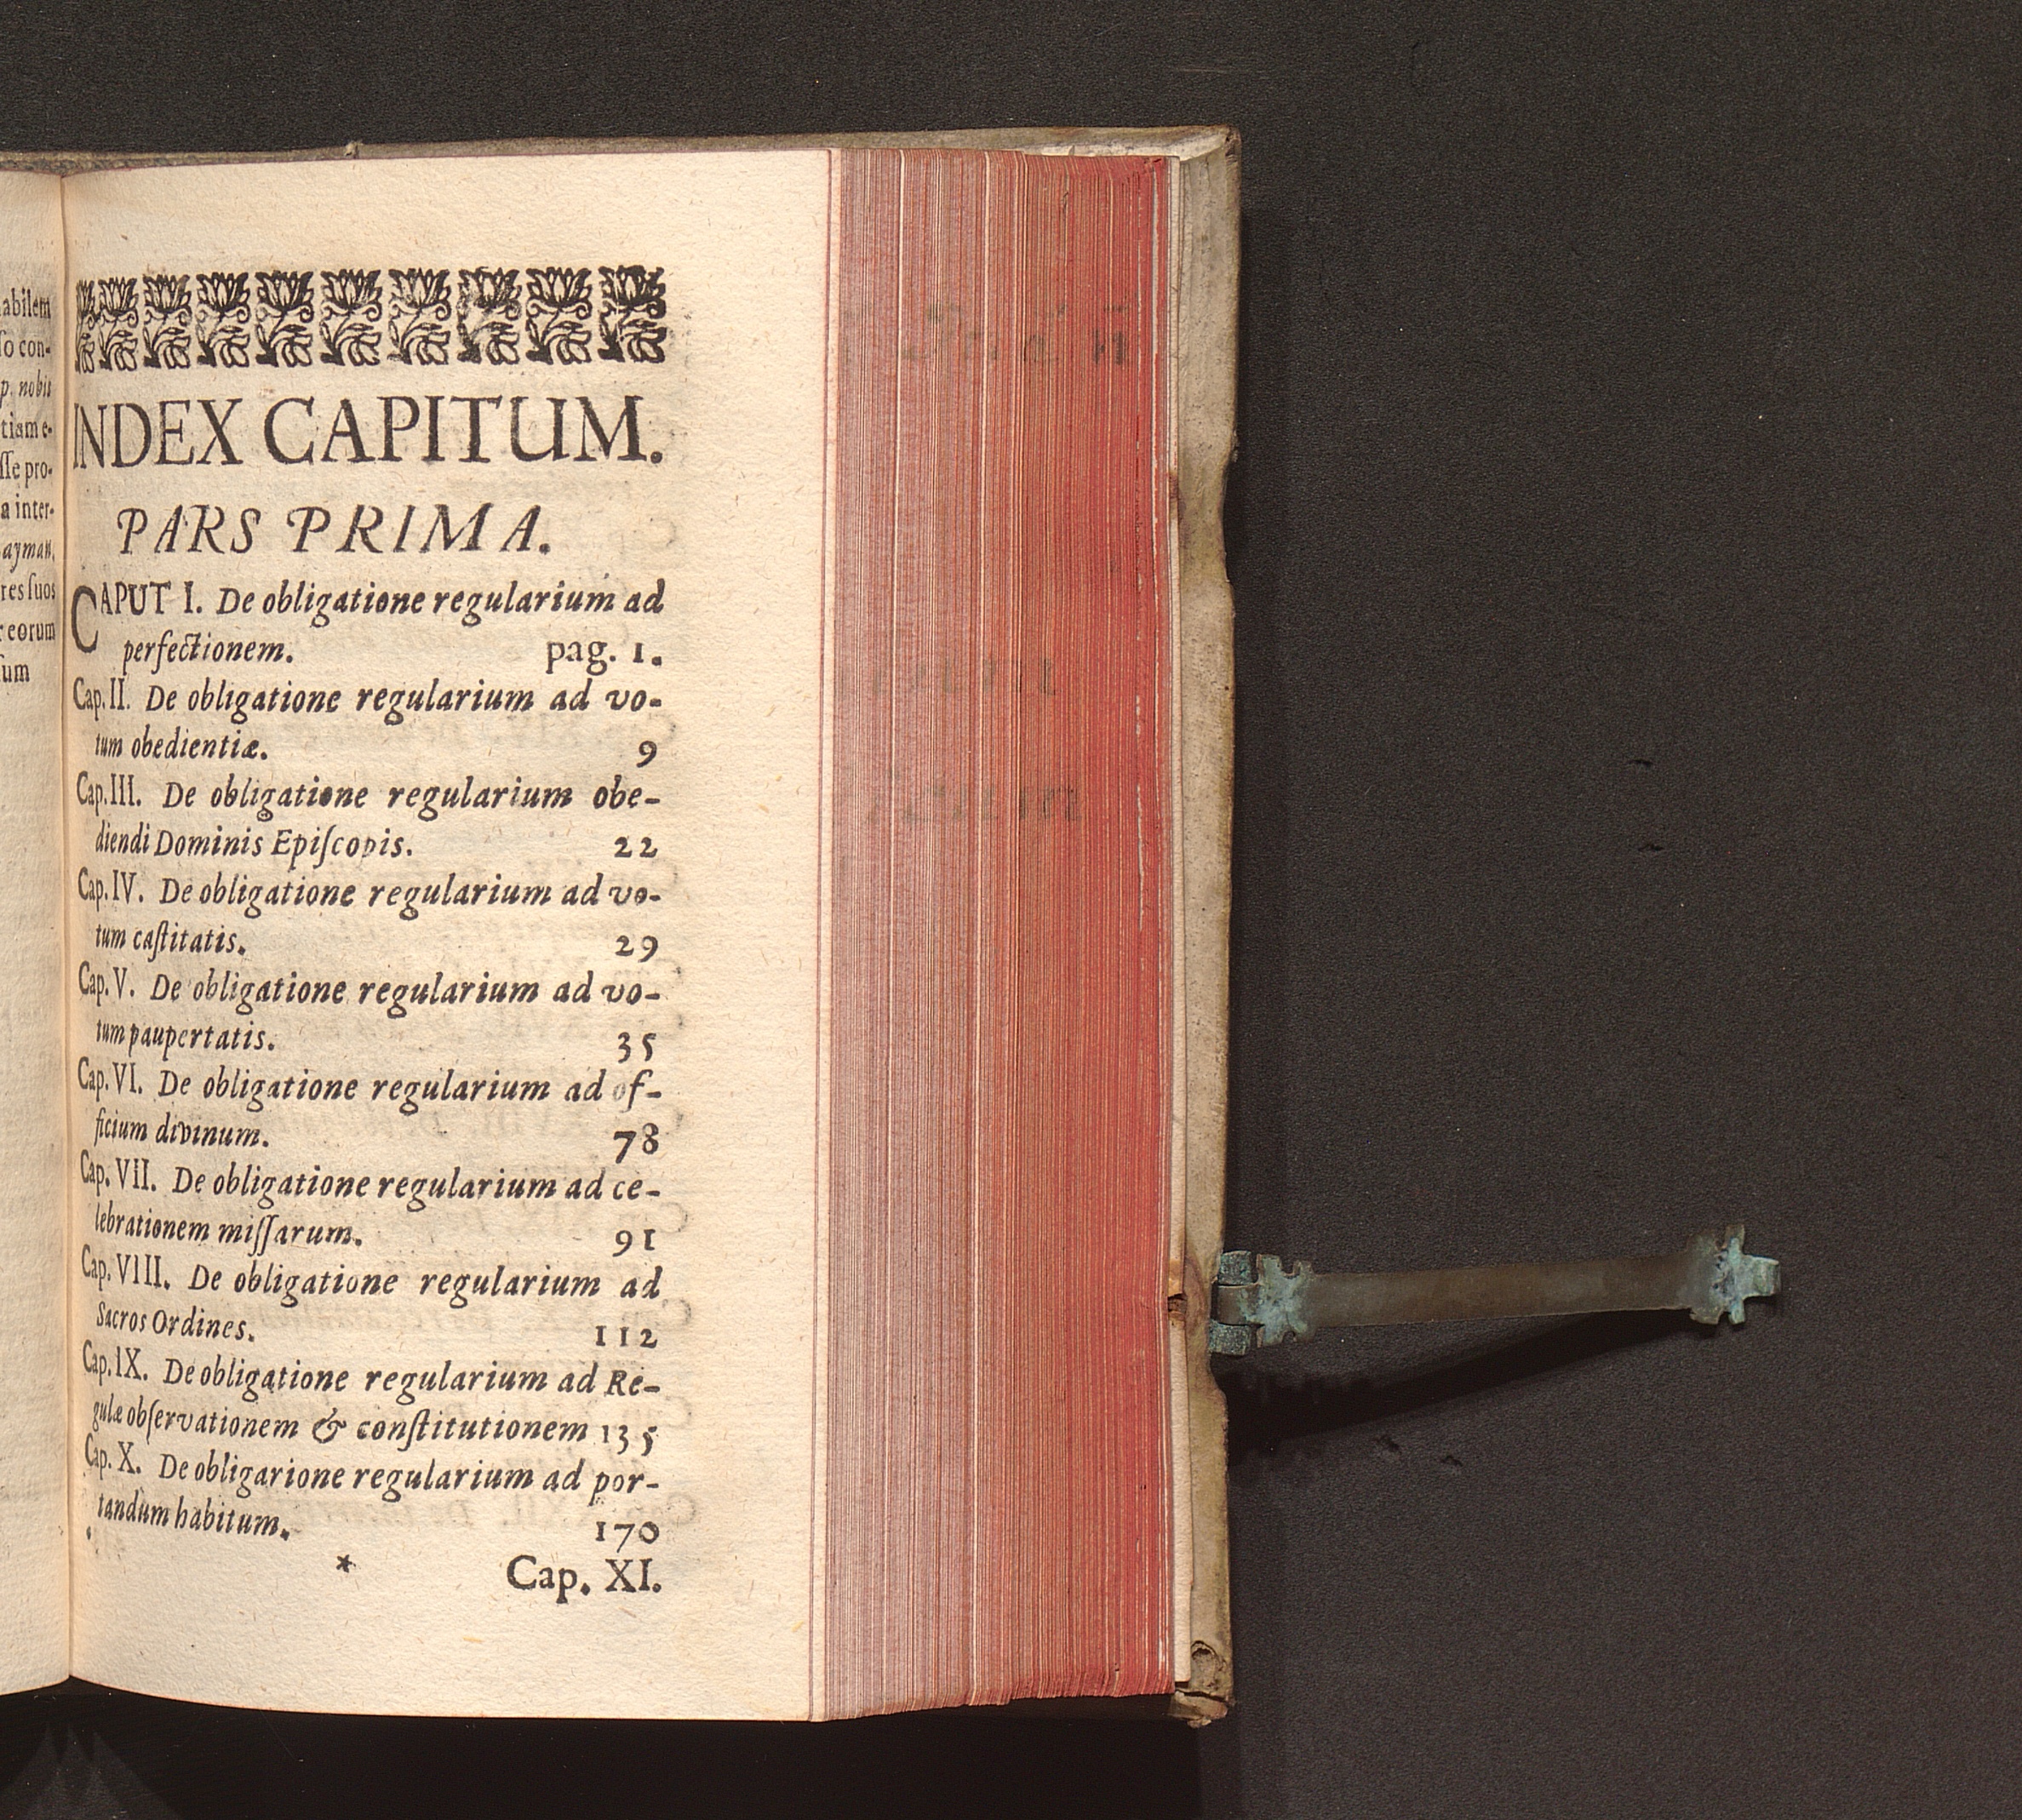 abilem
ſo con-
p. nobis
tiam e-
ſſe pro-
a inter-
ayman,
res ſuos
eorum
ſum
INDEX CAPITUM.
PARS PRIMA.
CAPUT I. De obligatione regularium ad
perfectionem. pag. 1.
Cap. II. De obligatione regularium ad vo-
tum obedientiæ. 9
Cap. III. De obligatione regularium obe-
diendi Dominis Epiſcopis. 22
Cap. IV. De obligatione regularium ad vo-
tum caſtitatis. 29
Cap. V. De obligatione regularium ad vo-
tum paupertatis. 35
Cap. VI. De obligatione regularium ad of-
ficium divinum. 78
Cap. VII. De obligatione regularium ad ce-
lebrationem miſſarum. 91
Cap. VIII. De obligatione regularium ad
Sacros Ordines. 112
Cap. IX. De obligatione regularium ad Re-
gulæ obſervationem & conſtitutionem 135
Cap. X. De obligarione regularium ad por-
tandum habitum. 170
* Cap. XI.